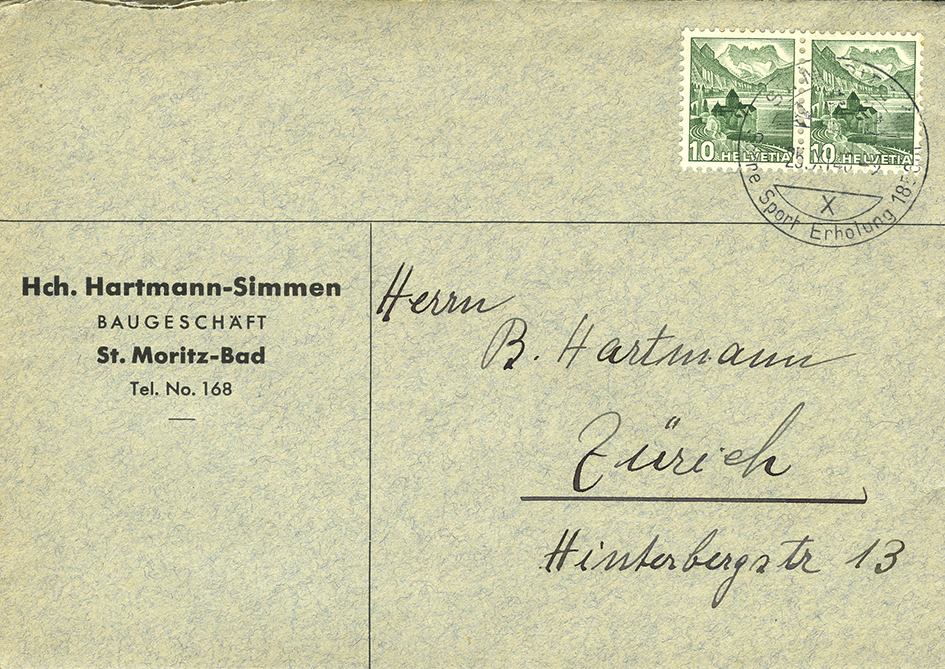 10 HELVETIA
10 HELVETIA
Sport Erholung
X
Hch. Hartmann-Simmen
BAUGESCHÄFT
St. Moritz-Bad
Tel. No. 168
Herrn
B. Hartmann
Zürich
Hinterbergstr 13